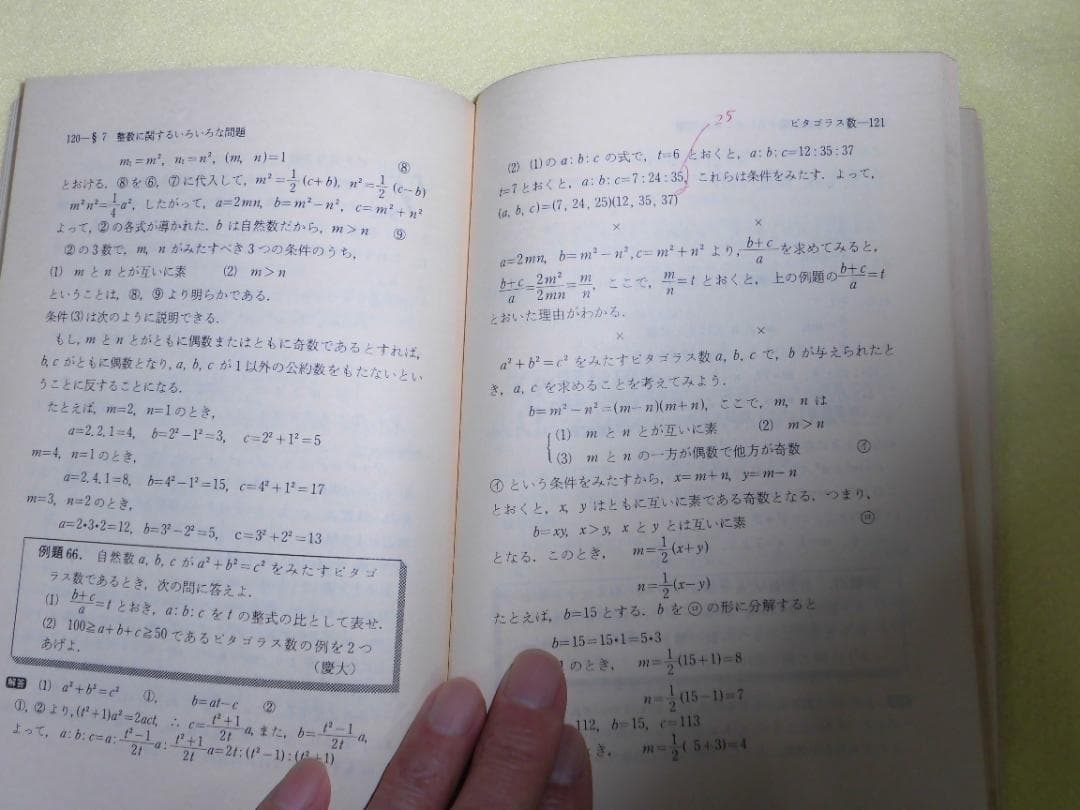 120—§7 整数に関するいろいろな問題
m₁=m², n₁=n², (m, n)=1 ⑧
とおける. ⑧を⑥, ⑦に代入して, m²=1/2(c+b), n²=1/2(c−b)
m²n²=1/4a², したがって, a=2mn, b=m²−n², c=m²+n²
よって, ②の各式が導かれた. bは自然数だから, m>n ⑨
②の3数で, m, nがみたすべき3つの条件のうち,
(1) mとnとが互いに素 (2) m>n
ということは, ⑧, ⑨より明らかである.
条件(3)は次のように説明できる.
もし, mとnとがともに偶数またはともに奇数であるとすれば,
b, cがともに偶数となり, a, b, cが1以外の公約数をもたないとい
うことに反することになる.
たとえば, m=2, n=1のとき,
a=2.2.1=4, b=2²−1²=3, c=2²+1²=5
m=4, n=1のとき,
a=2.4.1=8, b=4²−1²=15, c=4²+1²=17
m=3, n=2のとき,
a=2•3•2=12, b=3²−2²=5, c=3²+2²=13
例題66. 自然数a, b, cがa²+b²=c²をみたすピタゴ
ラス数であるとき, 次の問に答えよ.
(1) (b+c)/a=tとおき, a:b:cをtの整式の比として表せ.
(2) 100≧a+b+c≧50であるピタゴラス数の例を2つ
あげよ. (慶大)
解答 (1) a²+b²=c² ①, b=at−c ②
①, ②より, (t²+1)a²=2act, ∴ c=(t²+1)/2t a, また, b=(t²−1)/2t a,
よって, a:b:c=a:(t²−1)/2t a:(t²+1)/2t a=2t:(t²−1):(t²+1)
25
ピタゴラス数—121
(2) (1)のa:b:cの式で, t=6とおくと, a:b:c=12:35:37
t=7とおくと, a:b:c=7:24:35, これらは条件をみたす. よって,
(a, b, c)=(7, 24, 25)(12, 35, 37)
× ×
a=2mn, b=m²−n², c=m²+n²より, (b+c)/aを求めてみると,
(b+c)/a=2m²/2mn=m/n, ここで, m/n=tとおくと, 上の例題の(b+c)/a=t
とおいた理由がわかる.
× ×
a²+b²=c²をみたすピタゴラス数a, b, cで, bが与えられたと
き, a, cを求めることを考えてみよう.
b=m²−n²=(m−n)(m+n), ここで, m, nは
(1) mとnとが互いに素 (2) m>n
(3) mとnの一方が偶数で他方が奇数 ㋑
㋑という条件をみたすから, x=m+n, y=m−n
とおくと, x, yはともに互いに素である奇数となる. つまり,
b=xy, x>y, xとyとは互いに素 ㋺
となる. このとき, m=1/2(x+y)
n=1/2(x−y)
たとえば, b=15とする. bを㋺の形に分解すると
b=15=15•1=5•3
1のとき, m=1/2(15+1)=8
n=1/2(15−1)=7
112, b=15, c=113
き, m=1/2( 5+3)=4